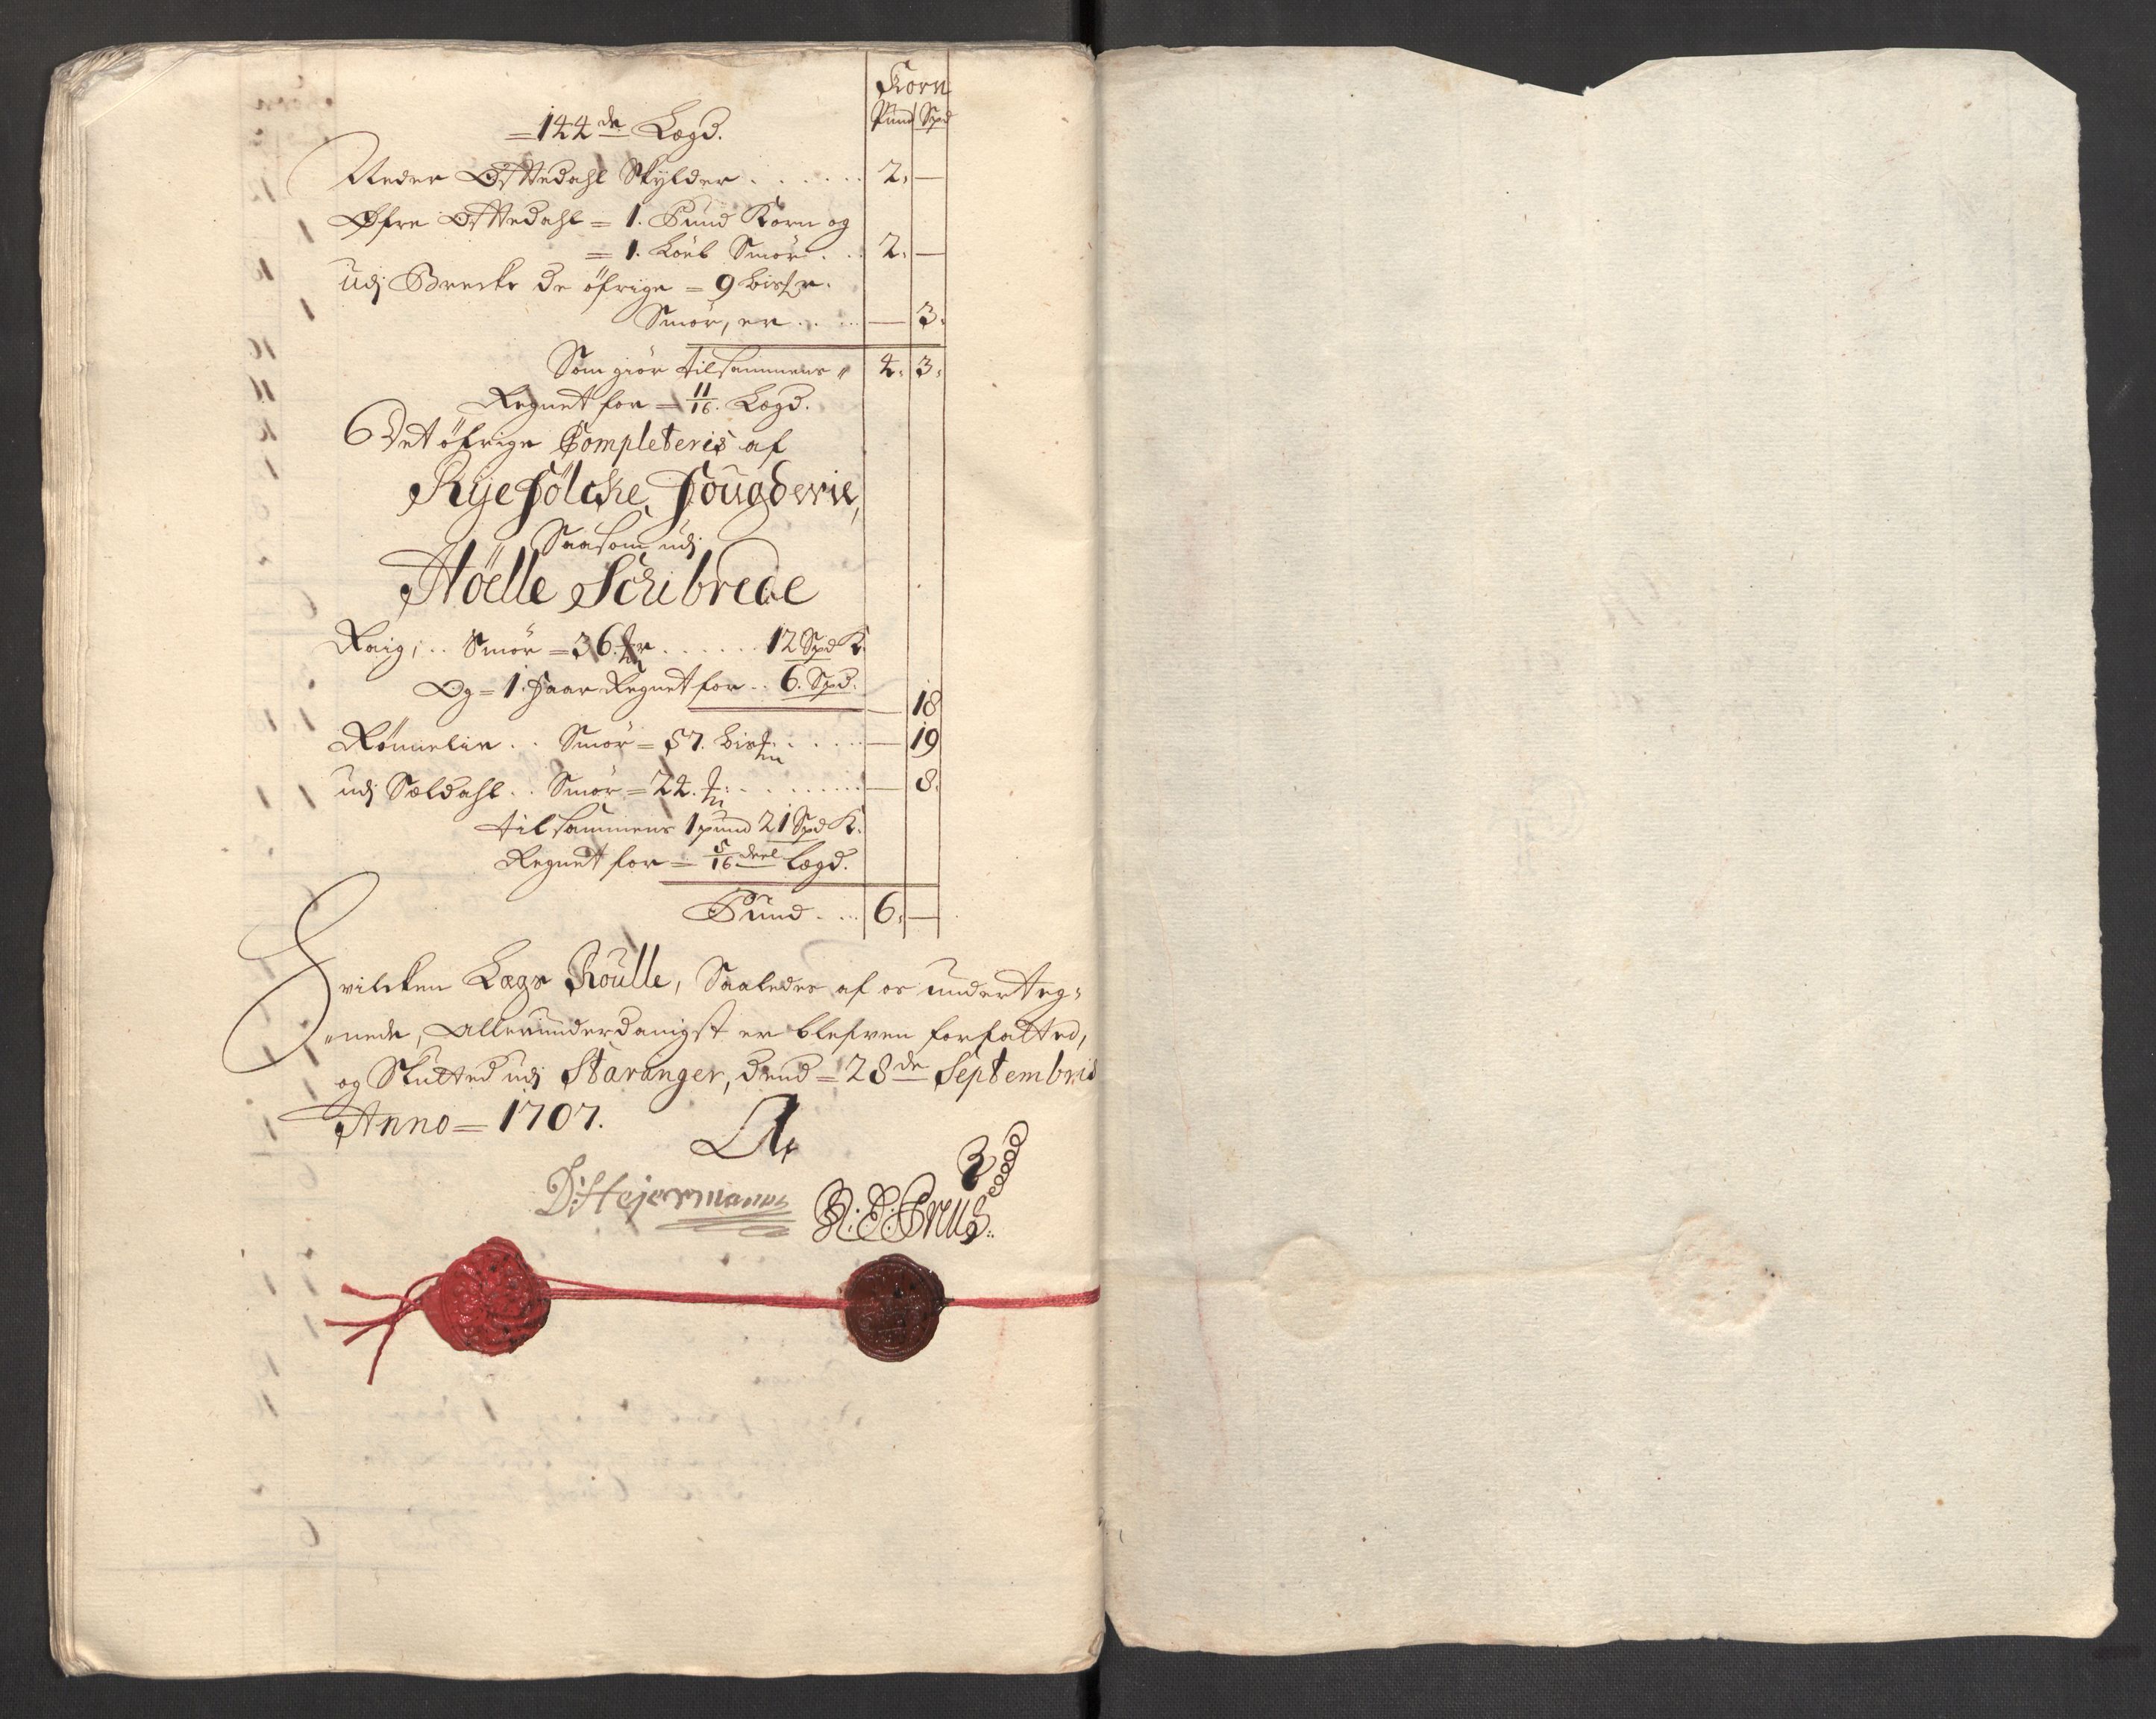 Korn
Pund Spd
=144de Lægd.
Neder Østtedahl Skylder . . . . . . 2. —
Øfre Østtedahl = 1. Pund Korn og
= 1. Løeb Smör . . 2. —
udj Brecke de öfrige = 9 bisr.
Smör, er . . . . — 3.
Som giör tilsammens " 4. 3.
Regnet for = 11/16. Lægd.
Det öfrige Completeris af
Ryefölcke Fougderie,
Saasom udj
Höelle Schibrede
Raig, .. Smör = 36. . . . . . . 12 Spd K.
Og = 1. faar Regnet for .. 6. Spd.
— 18
Rönnelie .. Smör = 57. bis . . . . — 19
udj Sældahl .. Smör = 24. . . . . . . — 8.
tilsammens 1 pund 21 Spd K.
Regnet for = 5/16 deel Lægd.
Pund . . . 6. —
Hvilcken Lægs Roulle, Saaledes af os underteg=
nede, Allerunderdanigst er blefven forfatted,
og Slutted udj Stavanger, dend = 28de Septembris
Anno = 1707.
D: Hejermanns